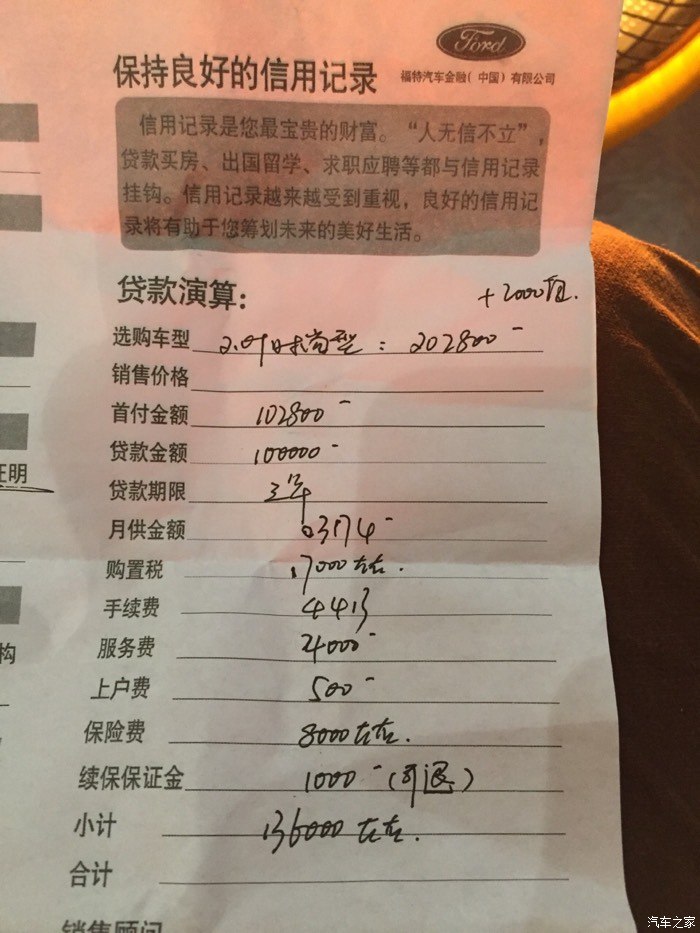 Ford
福特汽车金融(中国)有限公司
保持良好的信用记录
信用记录是您最宝贵的财富。“人无信不立”,
贷款买房、出国留学、求职应聘等都与信用记录
挂钩。信用记录越来越受到重视,良好的信用记
录将有助于您筹划未来的美好生活。
贷款演算:
+2000
选购车型 时尚型: 202800-
销售价格
首付金额 102800-
贷款金额 100000-
证明
贷款期限 3年
月供金额 3174-
购置税 17000左右.
手续费 4413
构
服务费 4000-
上户费 500-
保险费 8000左右.
续保保证金 1000-(可退)
小计 136000左右.
合计
销售顾问
汽车之家